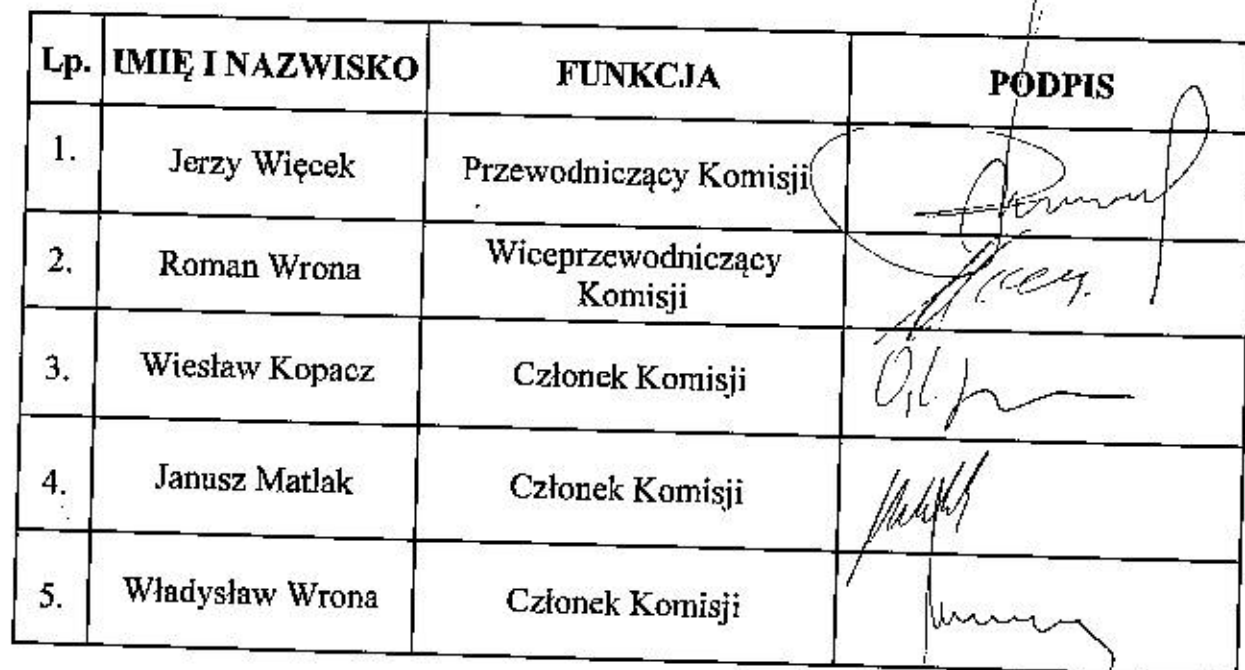 Lp. IMIĘ I NAZWISKO FUNKCJA PODPIS
1. Jerzy Więcek Przewodniczący Komisji
2. Roman Wrona Wiceprzewodniczący
Komisji
3. Wiesław Kopacz Członek Komisji
4. Janusz Matlak Członek Komisji
5. Władysław Wrona Członek Komisji